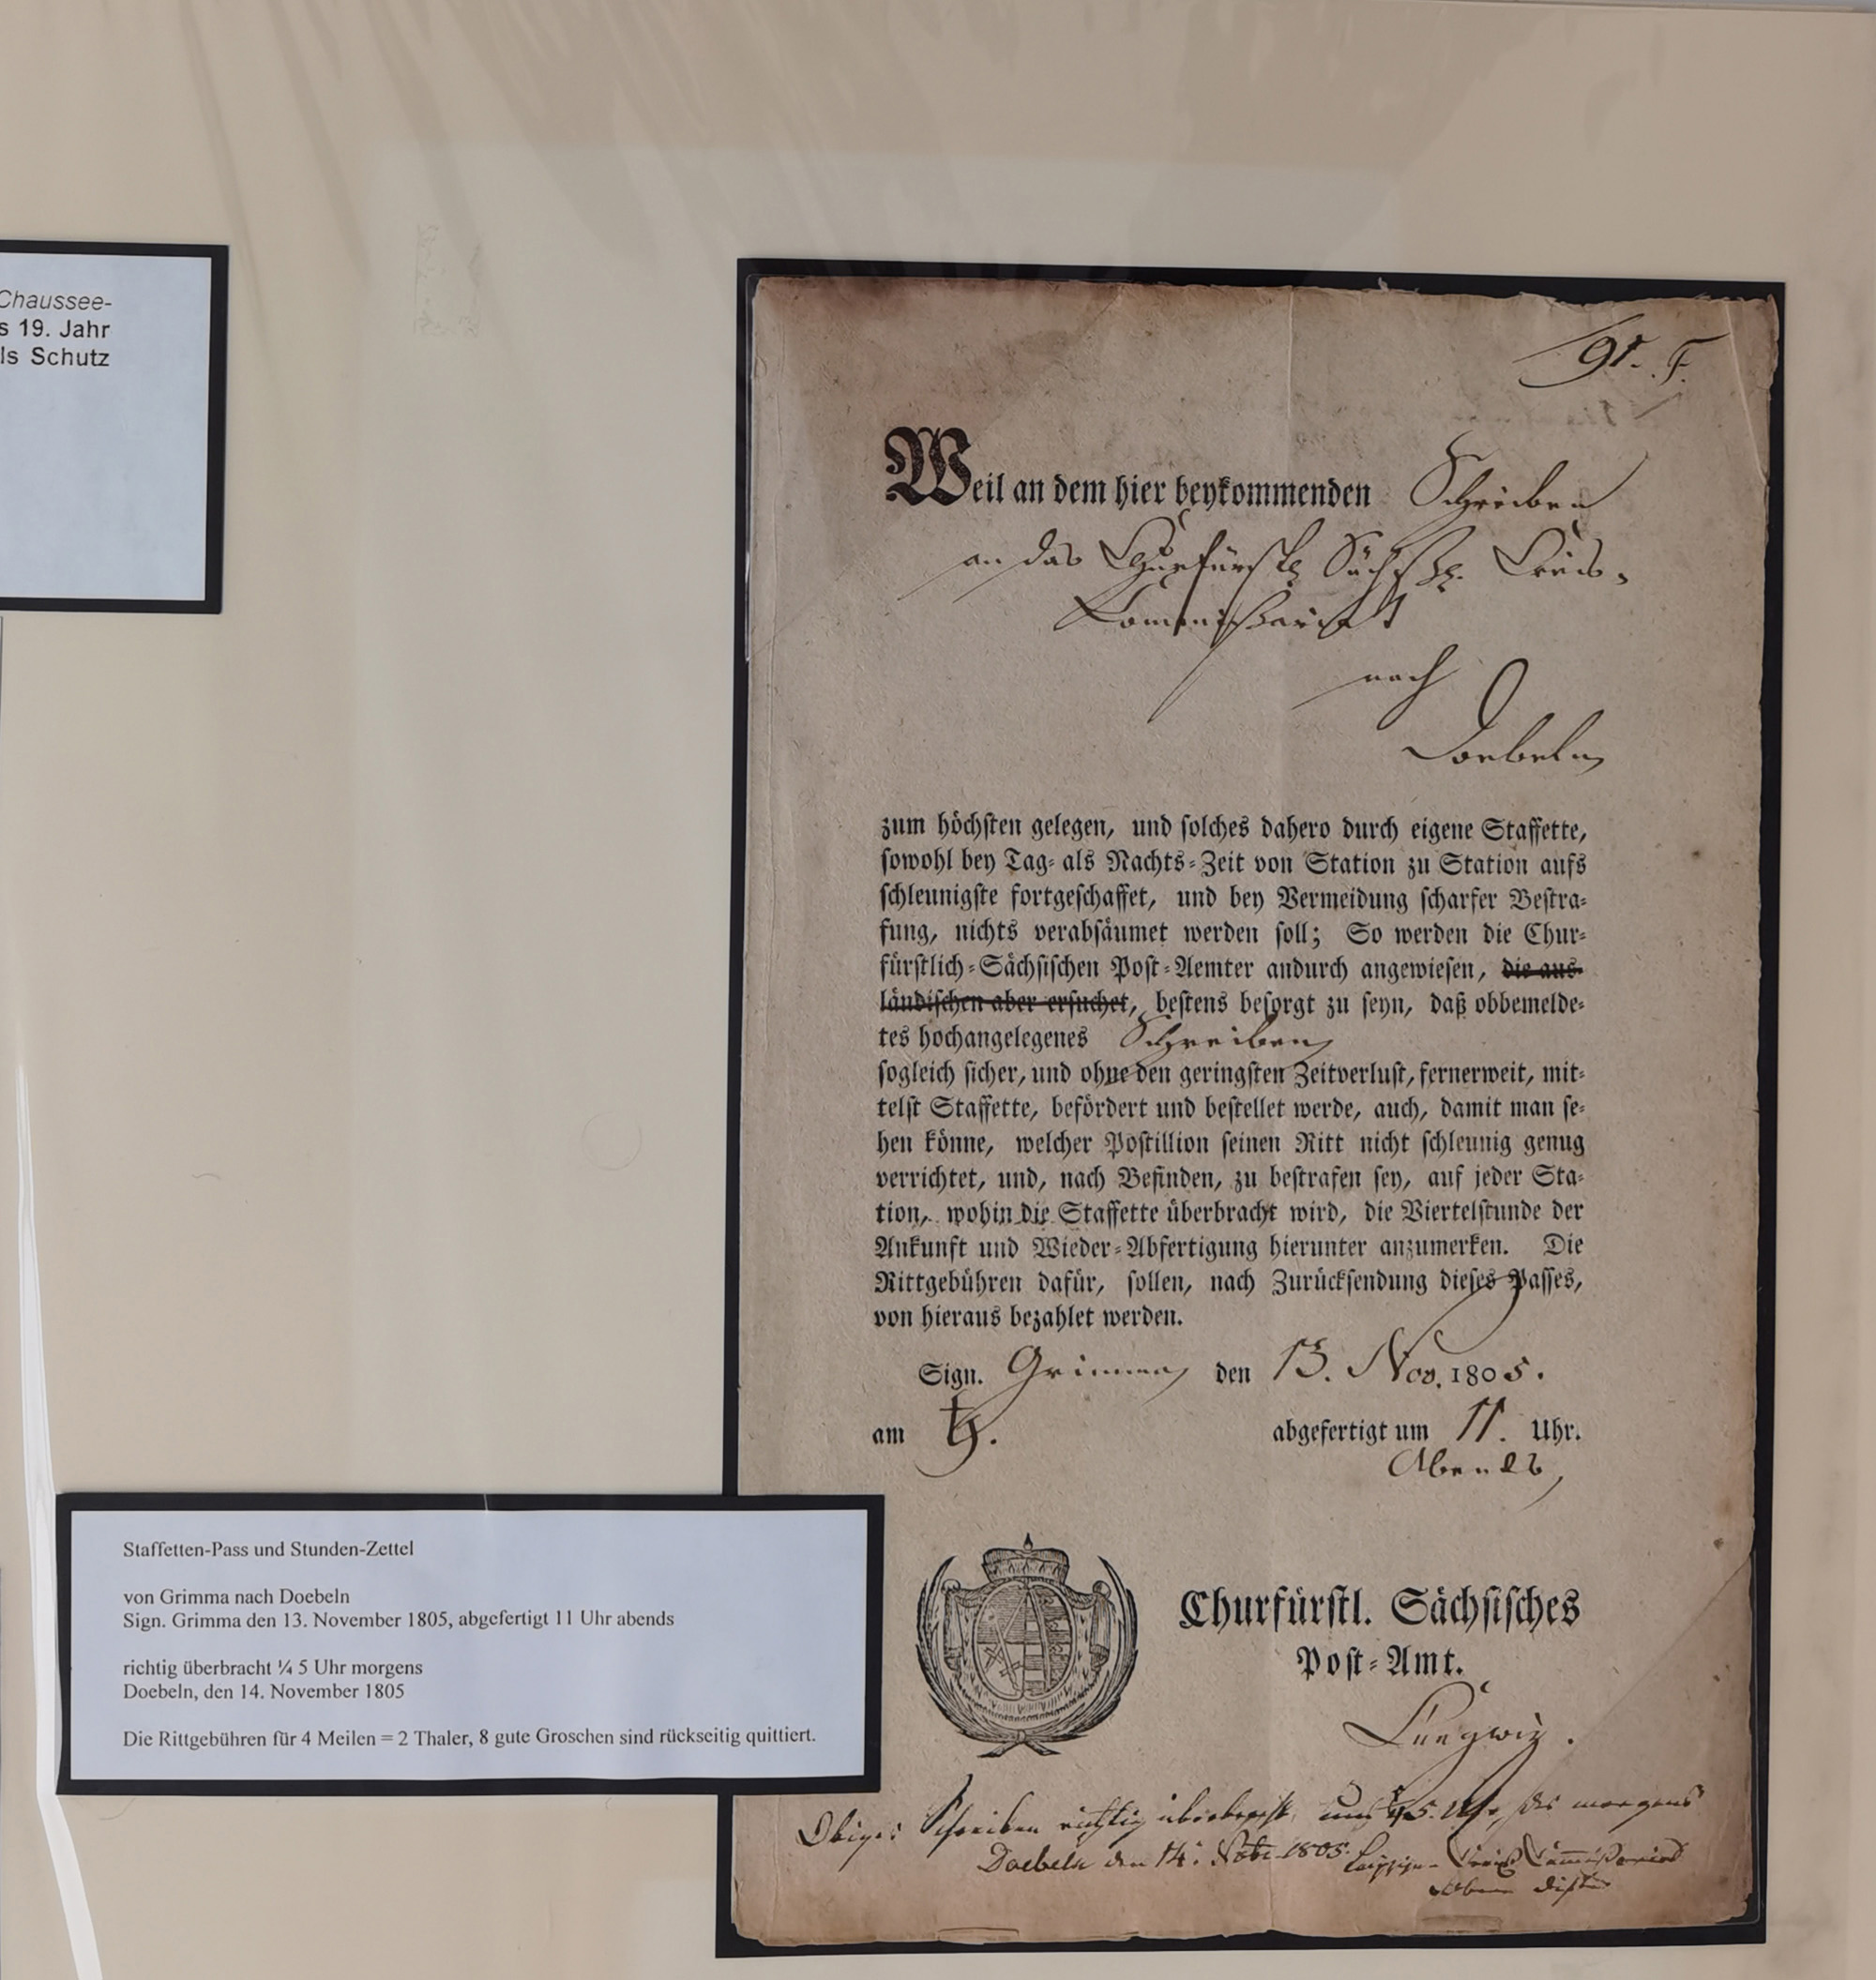 Chaussee-
s 19. Jahr
ls Schutz
91.
Weil an dem hier beykommenden Schreiben
an das Churfürstl. Sächßl. Creis-
Kommißariat
nach
Doebeln
zum höchsten gelegen, und solches dahero durch eigene Staffette,
sowohl bey Tag- als Nachts-Zeit von Station zu Station aufs
schleunigste fortgeschaffet, und bey Vermeidung scharfer Bestra-
fung, nichts verabsäumet werden soll; So werden die Chur-
fürstlich-Sächsischen Post-Aemter andurch angewiesen, die aus-
ländischen aber ersuchet, bestens besorgt zu seyn, daß obbemelde-
tes hochangelegenes Schreiben
sogleich sicher, und ohne den geringsten Zeitverlust, fernerweit, mit-
telst Staffette, befördert und bestellet werde, auch, damit man se-
hen könne, welcher Postillion seinen Ritt nicht schleunig genug
verrichtet, und, nach Befinden, zu bestrafen sey, auf jeder Sta-
tion, wohin die Staffette überbracht wird, die Viertelstunde der
Ankunft und Wieder-Abfertigung hierunter anzumerken. Die
Rittgebühren dafür, sollen, nach Zurücksendung dieses Passes,
von hieraus bezahlet werden.
Sign. Grimma den 13. Nov. 1805.
am abgefertigt um 11. Uhr.
Abends
Churfürstl. Sächsisches
Post-Amt.
Obiges Schreiben richtig überbracht um 1/4 5. Uhr des morgens
Doebeln den 14. Nobr 1805.
Staffetten-Pass und Stunden-Zettel
von Grimma nach Doebeln
Sign. Grimma den 13. November 1805, abgefertigt 11 Uhr abends
richtig überbracht ¼ 5 Uhr morgens
Doebeln, den 14. November 1805
Die Rittgebühren für 4 Meilen = 2 Thaler, 8 gute Groschen sind rückseitig quittiert.